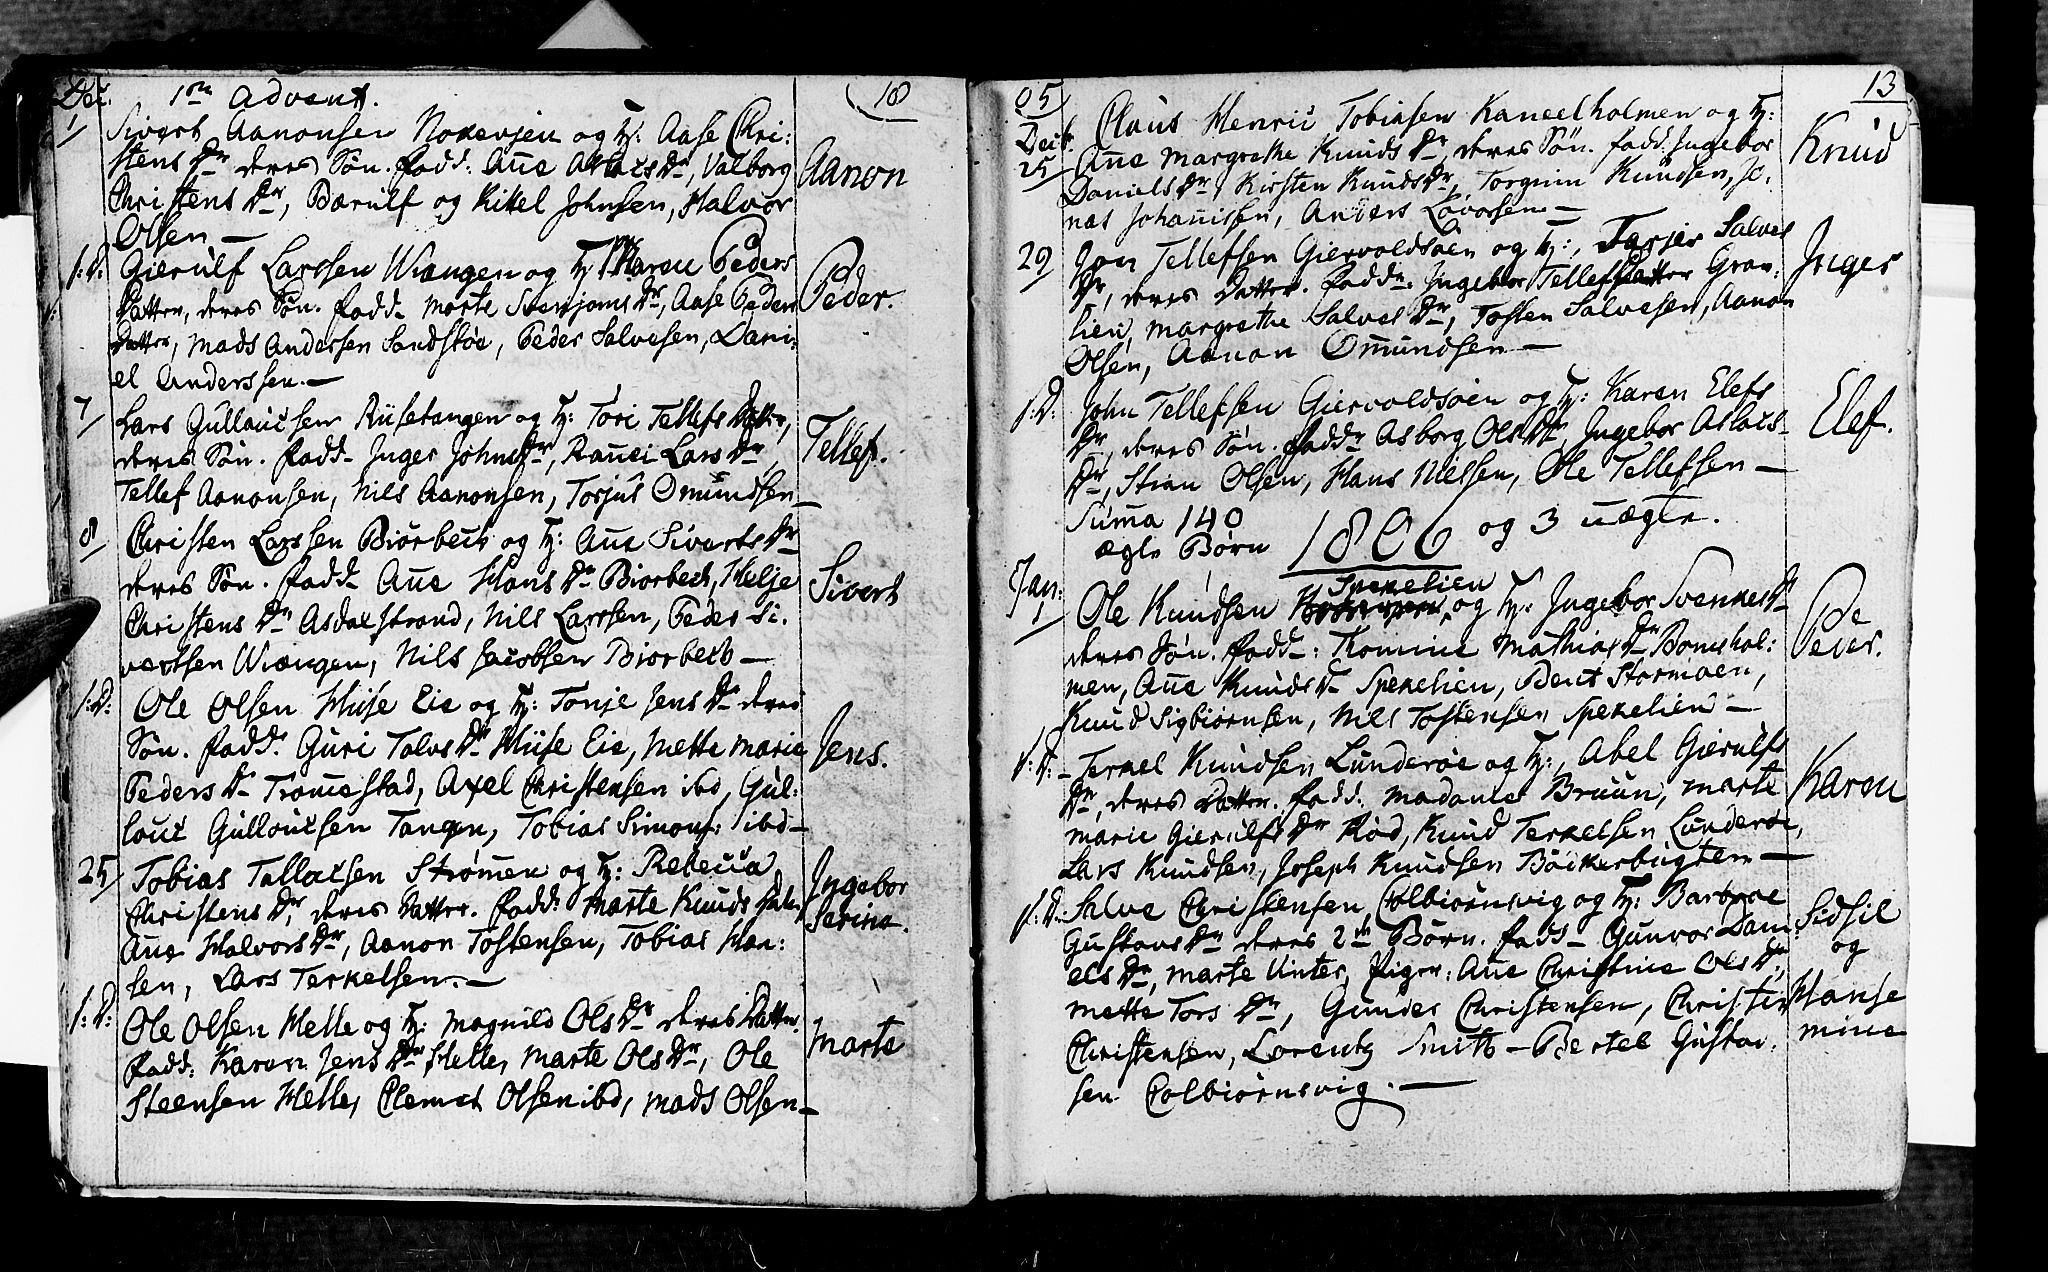 Dec. 1ste Advent. (18
1/ Sivert Aanonsen Noxevjen og H: Aase Chri:
stens Dr deres Søn. Fadd: Ane Aslacs Dr, Valborg Aanon
Christens Dr, Bærulf og Kittel Johnsen, Halvor
Olsen —
s:D: Gierulf Larssen Wrængen og H: Maren Peders
Datter, deres Søn. Fadd. Marte Steenjoms Dr, Aase Peders Peder.
Datter, Mads Andersen Sandstøe, Peder Salvesen, Dani:
el Anderssen. —
7/ Lars Gullovsen Risetangen og H: Tori Tellefs Datter,
deres Søn. Fadd. Inger Johns Dr, Ranei Lars Dr, Tellef.
Tellef Aanonsen, Nils Aanonsen, Torjus Omundsen —
8/ Christen Larssen Biorbech og H: Ane Siverts Dr
deres Søn. Fadd. Ane Hans Dr Biorbech, Helje Sivert
Christens Dr Asdalstrand, Nils Larssen, Peder Si:
vertsen Wrængen, Nils Jacobsen Biorbech —
s:D: Ole Olsen Huse Eie og H: Tonje Jens Dr deres
Søn. Fadd. Guri Talvs Dr Huse Eie, Mette Marie Jens.
Peders Dr Tromestad, Axel Christensen ibd, Gul:
louc Gulloucsen Tangen, Tobias Simons: ibd —
25/ Tobias Tallacsen Strømen og H: Rebecca Ingebor
Christens Dr, deres Datter. Fadd: Marte Knuds Datter, Sarina.
Ane Halvors Dr, Aanon Tostensen, Tobias Han:
sen, Lars Terkelsen. —
s:D: Ole Olsen Helle og H: Magnild Ols Dr deres Datter
Fadd: Karen Jens Dr Helle, Marte Ols Dr, Ole Marte
Steensen Helle, Clemet Olsen ibd, Mads Olsen —
05/ 13
Decb. Claus Henric Tobiasen Kaneelholmen og H:
25/ Ane Margrethe Knuds Dr, deres Søn. Fadd. Ingebor Knud
Daniels Dr, Kirsten Knuds Dr, Torgrim Knudsen, Jo:
nas Johannisen, Anders Lovorsen —
29/ Jon Tellefsen Giervoldsøen og H: Tarjer Salves
Dr, deres Datter. Fadd: Ingebor Tellefsdatter Grav: Inger
lien, Margrethe Salves Dr, Tosten Salvesen, Aanon
Olsen, Aanon Omundsen —
s:D: John Tellefsen Giervoldsøen og H: Karen Elefs
Dr, deres Søn. Fadd. Asborg Ols Dr, Ingebor Aslacs- Elef.
Dr, Stian Olsen, Hans Nielsen, Ole Tellefsen —
Suma 140 1806 og 3 uægte.
ægte Børn
Jan: Spekelien
1/ Ole Knudsen og H: Ingebor Svenkes Dr
deres Søn. Fadd: Tomine Mathias Dr Bomshol: Pe
men, Ane Knuds Dr Spekelien, Bent Stormoen, Peder.
Knud Sigbiørnsen, Nils Tostensen Spekelien —
s:D: Terkel Knudsen Lunderøe og H: Abel Gierulfs
Dr, deres Datter. Fadd: Madame Bruun, Marte Karen
Marie Gierulfs Dr Rød, Knud Terkelsen Lunderøe,
Lars Knudsen, Joseph Knudsen Bøckerbugten —
s:D: Salve Christensen Colbiornsvig og H: Barbroe Sidsil
Gustavs Dr, deres 2de Børn. Fadd. Gunvor Dani: og
els Dr, Marte Vinter, Piger: Ane Christine Ols Dr,
Mette Tors Dr, Gunder Christensen, Christen Hanse
Christensen, Lorentz Smith — Bertel Gustav: mine
sen Colbiornsvig. —